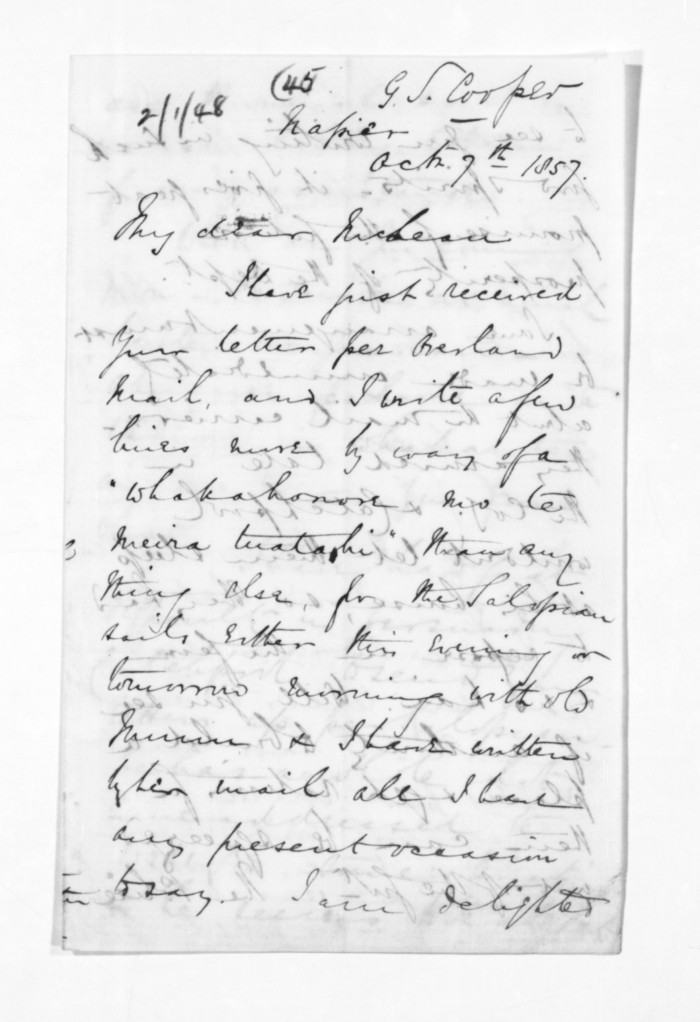 (45
G. S. Cooper
2/1/48
Napier
Octr. 7th 1857.
My dear McLean
I have just received
your letter per overland
Mail, and I write a few
lines more by way of a
"whakahonore mo te
meira tuatahi" than any
thing else, for the Salopian
sails either this evening or
tomorrow morning with old
& I have written
by her mail all I have
any present occasion
to say. I am delighted